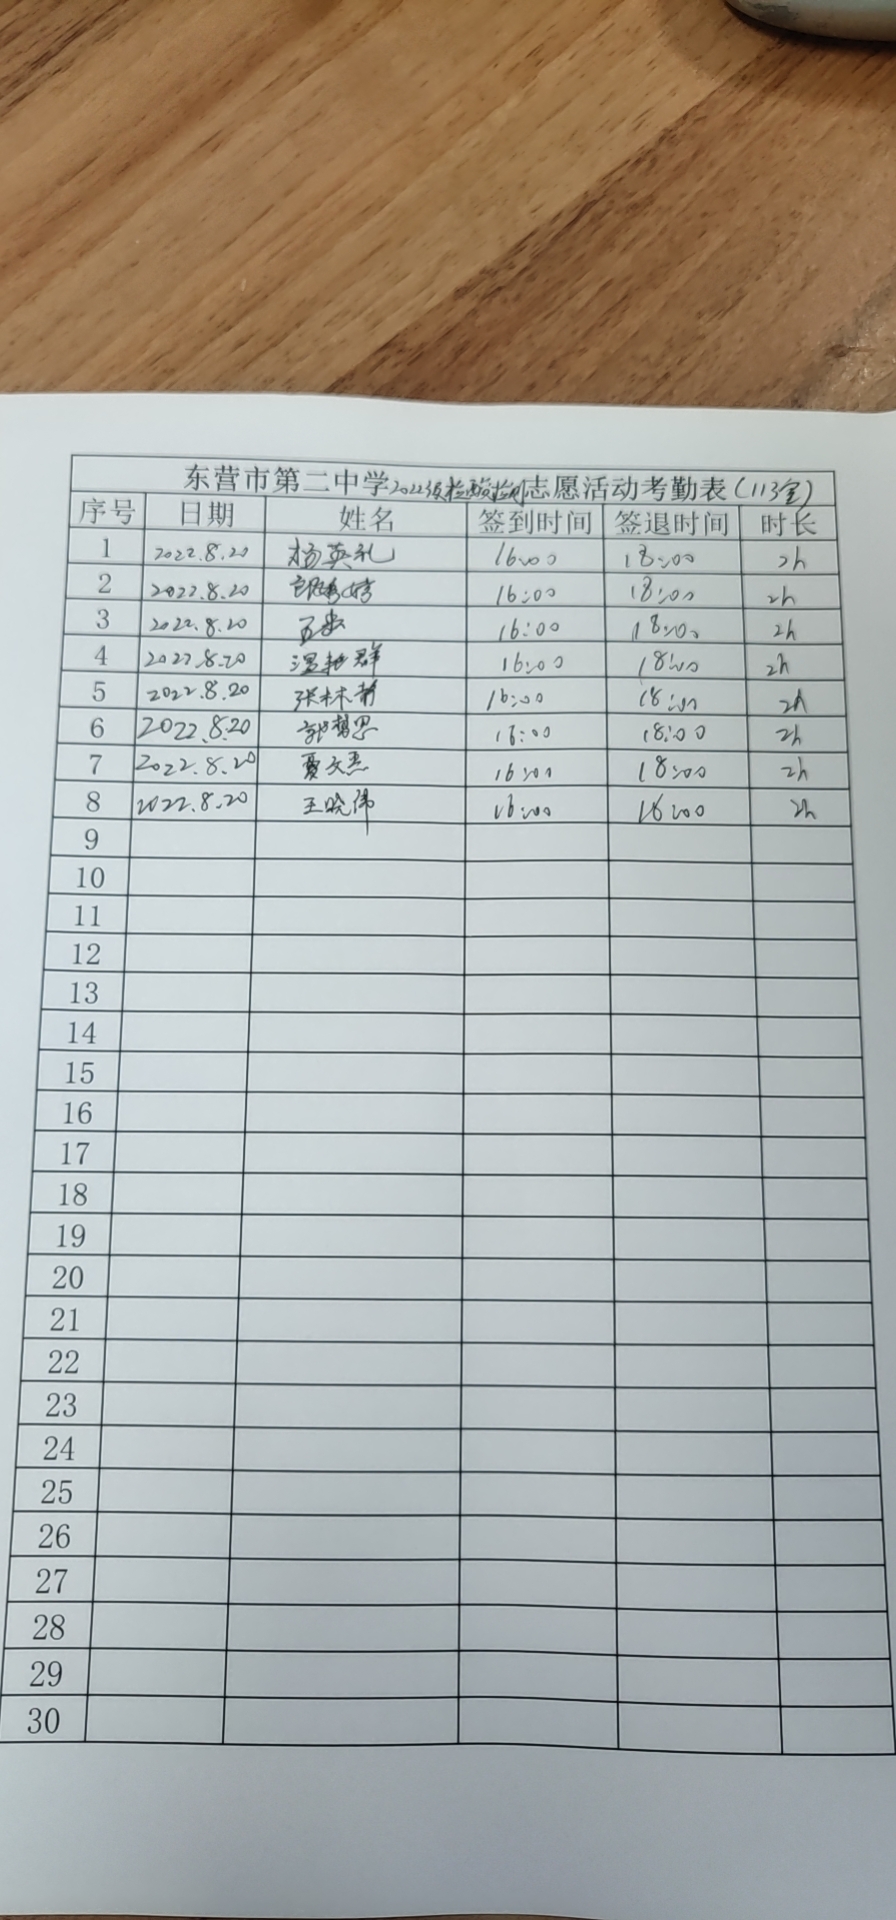 东营市第二中学2022级核酸检测志愿活动考勤表(113室)
序号 日期 姓名 签到时间 签退时间 时长
1 2022.8.20 杨英礼 16:00 18:00 2h
2 2022.8.20 16:00 18:00 2h
3 2022.8.20 16:00 18:00 2h
4 2022.8.20 16:00 18:00 2h
5 2022.8.20 张林静 16:00 18:00 2h
6 2022.8.20 郭梦思 16:00 18:00 2h
7 2022.8.20 夏文杰 16:00 18:00 2h
8 2022.8.20 王晓伟 16:00 2h
9
10
11
12
13
14
15
16
17
18
19
20
21
22
23
24
25
26
27
28
29
30